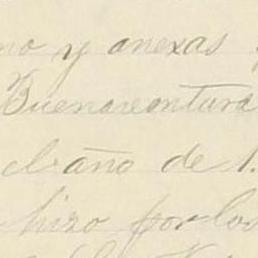 no y anexas
Buenaventura
el año de 1.
hizo por los